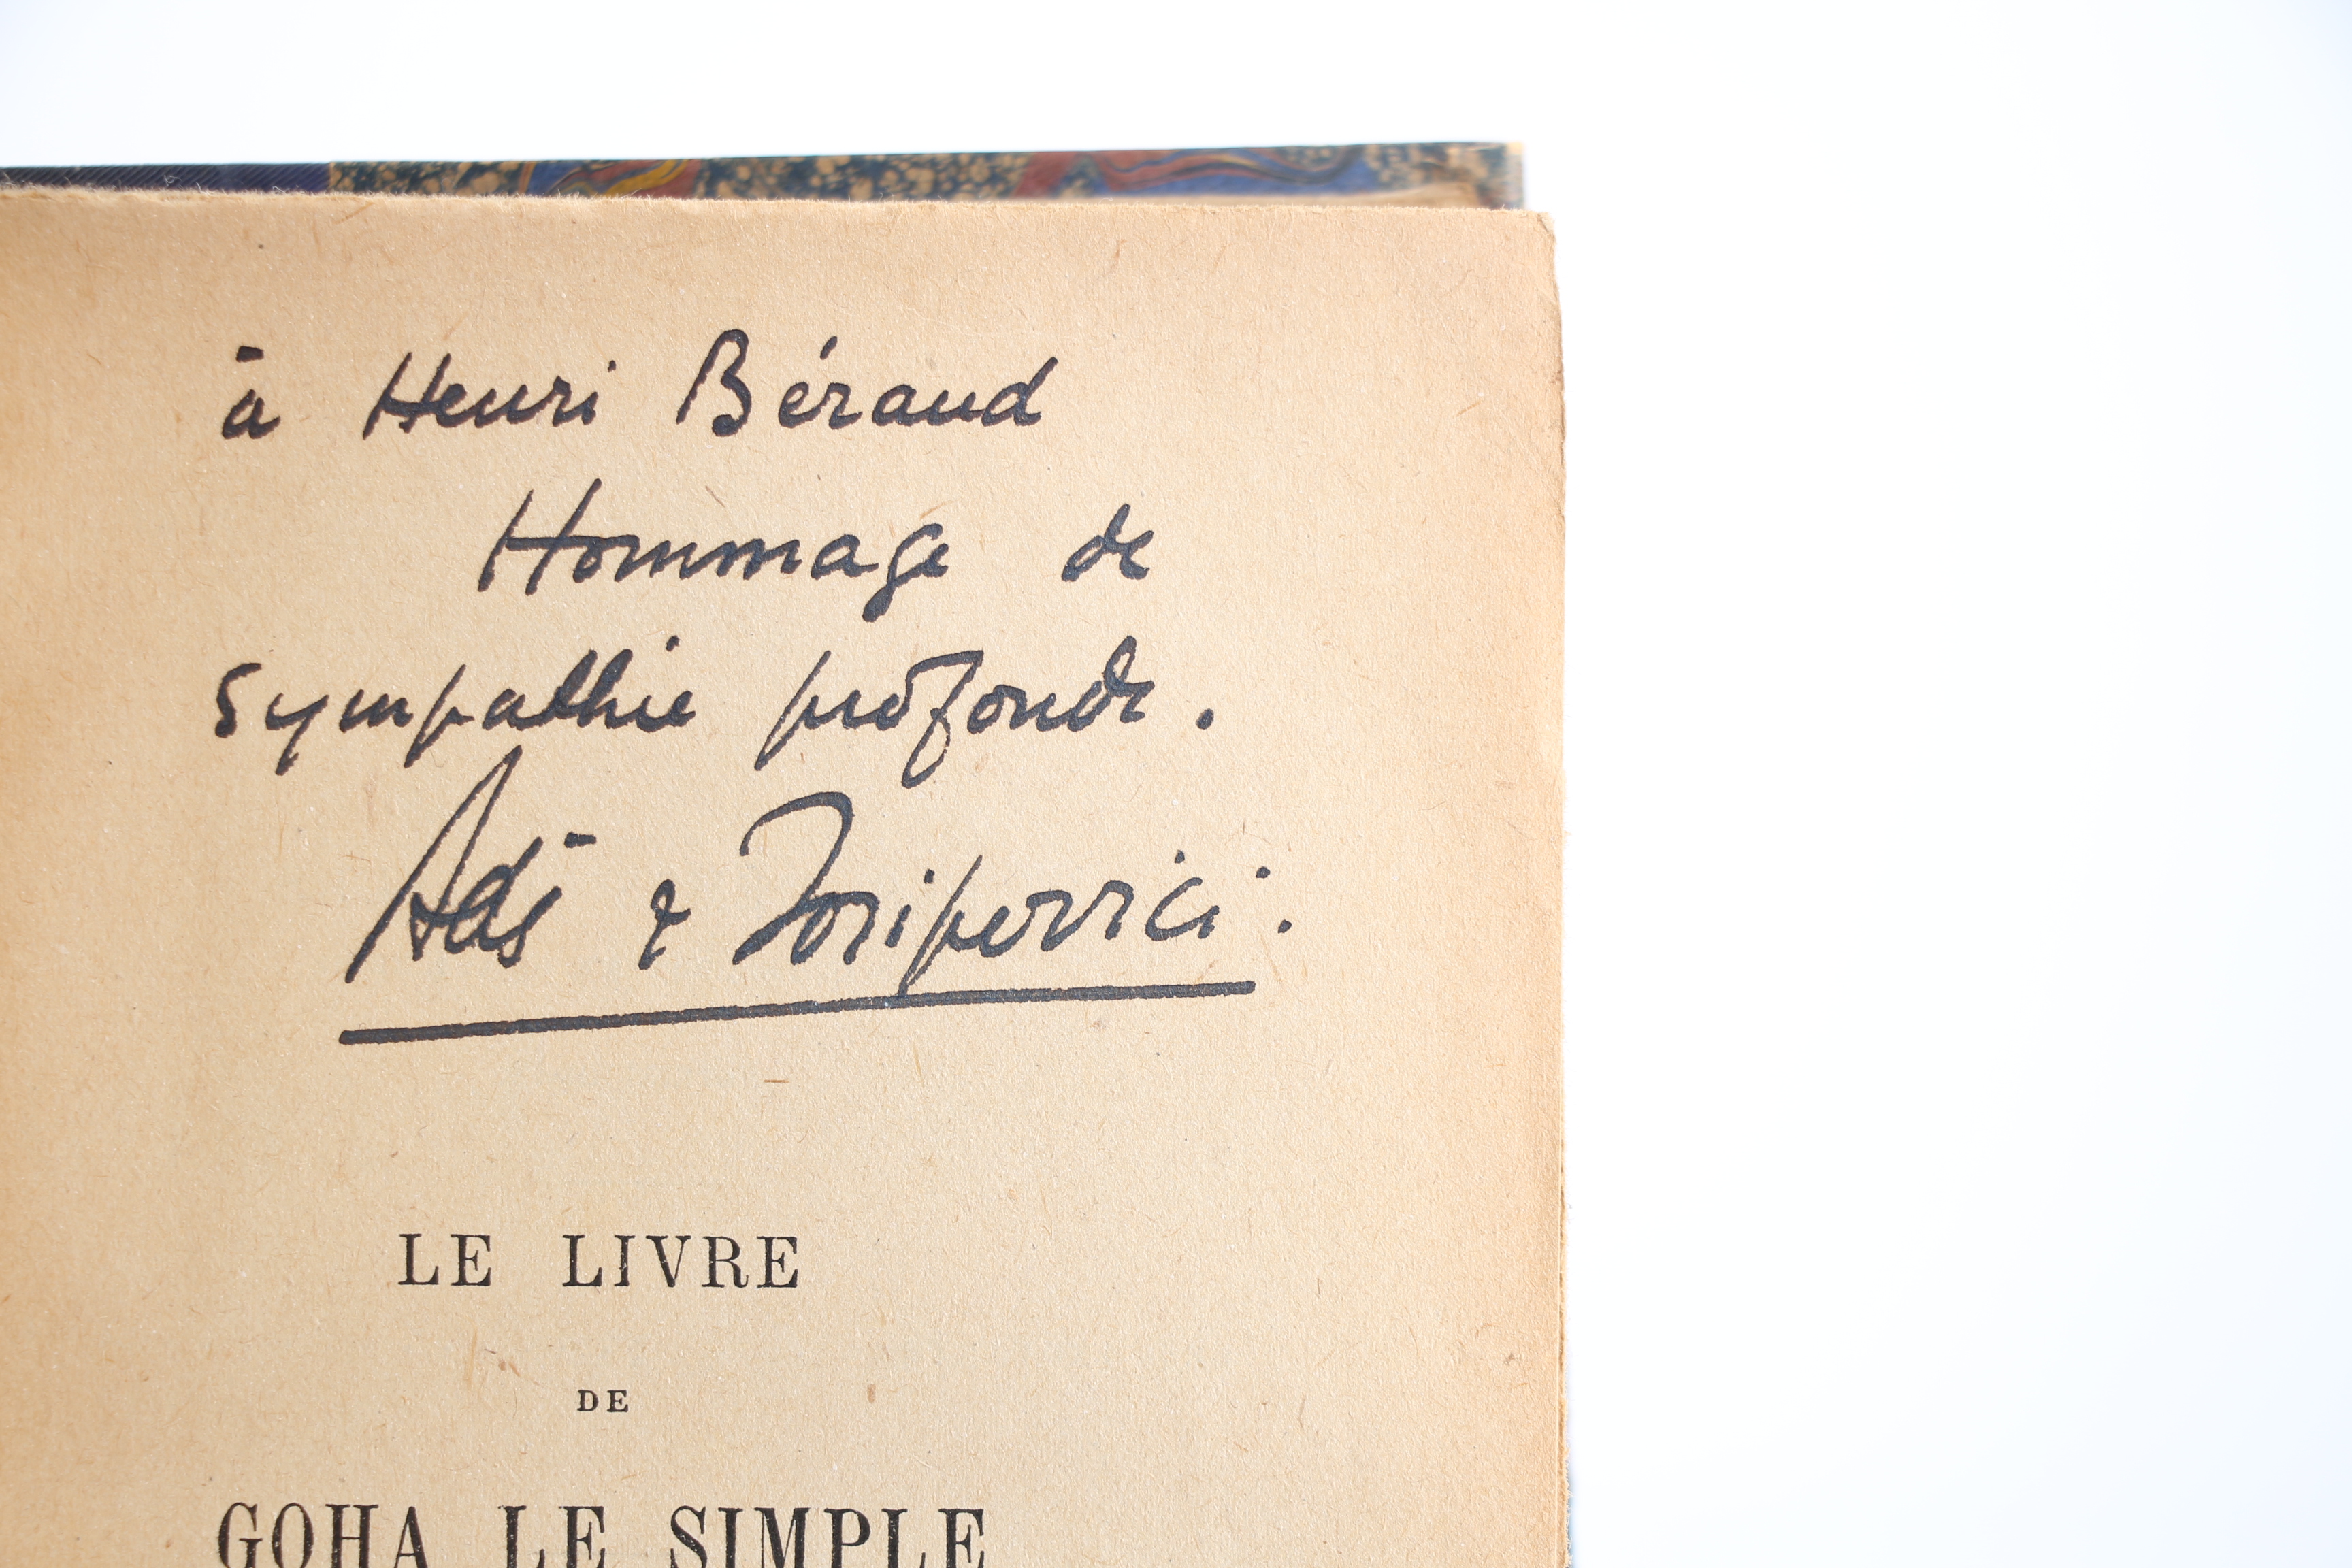 à Henri Béraud
Hommage de
sympathie profonde.
Adès & Josipovici.
LE LIVRE
DE
GOHA LE SIMPLE